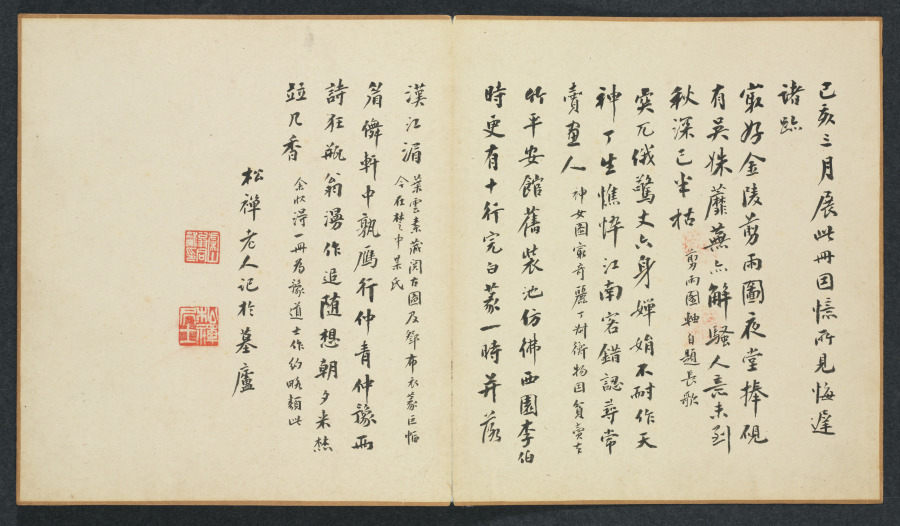 己亥三月展此冊因憶所見悔遲
諸跡
最好金陵剪雨圖夜堂捧硯
有吳姝蘼蕪亦解騷人意未到
秋深已半枯 剪雨圖軸自題長歌
突兀俄驚丈六身嬋娟不耐作天
神丁生憔悴江南客錯認尋常
賣畫人 神女圖最奇麗丁對衡物因貧賣去
竹平安館舊裝池仿佛西園李伯
時更有十行完白篆一時并落
漢江湄 葉雲素藏閱古圖及鄧布衣篆巨幅
今在楚中某氏
眉僊軒中孰雁行仲青仲豫兩
詩狂瓶翁漫作追隨想朝夕米
並几香 余收得一冊為豫道士作約略類此
松禪老人記於墓廬
松禪居士